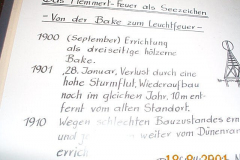 Das Memmert-Feuer als Seezeichen
- Von der Bake zum Leuchtfeuer -
1900 (September) Errichtung
als dreiseitige hölzerne
Bake.
1901 28. Januar, Verlust durch eine
hohe Sturmflut, Wiederaufbau
noch im gleichen Jahr, 10 m ent-
fernt vom alten Standort.
1910 Wegen schlechten Bauzustandes ern
und weiter vom Dünenran
errich